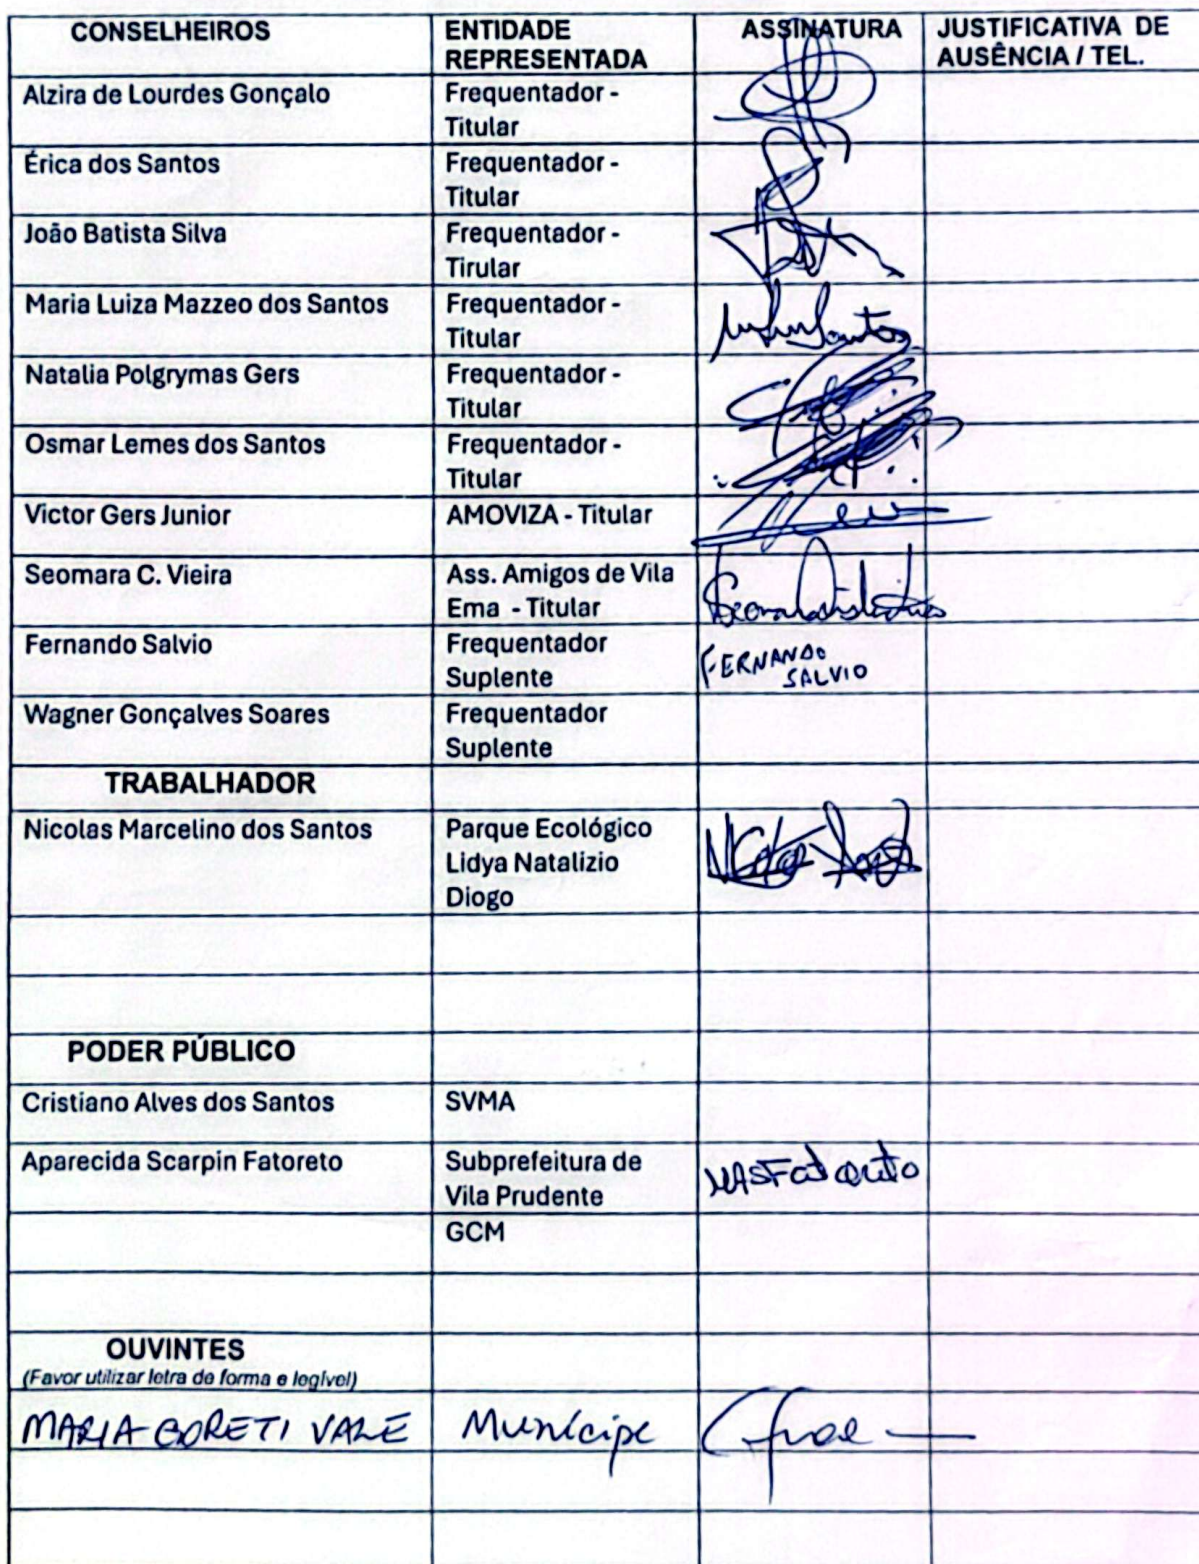 CONSELHEIROS
ENTIDADE REPRESENTADA
ASSINATURA
JUSTIFICATIVA DE AUSÊNCIA / TEL.
Alzira de Lourdes Gonçalo
Frequentador -
Titular
Érica dos Santos
Frequentador -
Titular
João Batista Silva
Frequentador -
Tirular
Maria Luiza Mazzeo dos Santos
Frequentador -
Titular
Santos
Natalia Polgrymas Gers
Frequentador -
Titular
Osmar Lemes dos Santos
Frequentador -
Titular
Victor Gers Junior
AMOVIZA - Titular
Seomara C. Vieira
Ass. Amigos de Vila
Ema - Titular
Fernando Salvio
Frequentador
Suplente
FERNANDO
SALVIO
Wagner Gonçalves Soares
Frequentador
Suplente
TRABALHADOR
Nicolas Marcelino dos Santos
Parque Ecológico
Lidya Natalizio
Diogo
PODER PÚBLICO
Cristiano Alves dos Santos
SVMA
Aparecida Scarpin Fatoreto
Subprefeitura de
Vila Prudente
MASFatoreto
GCM
OUVINTES
(Favor utilizar letra de forma e legível)
MARIA GORETI VALE
Munícipe